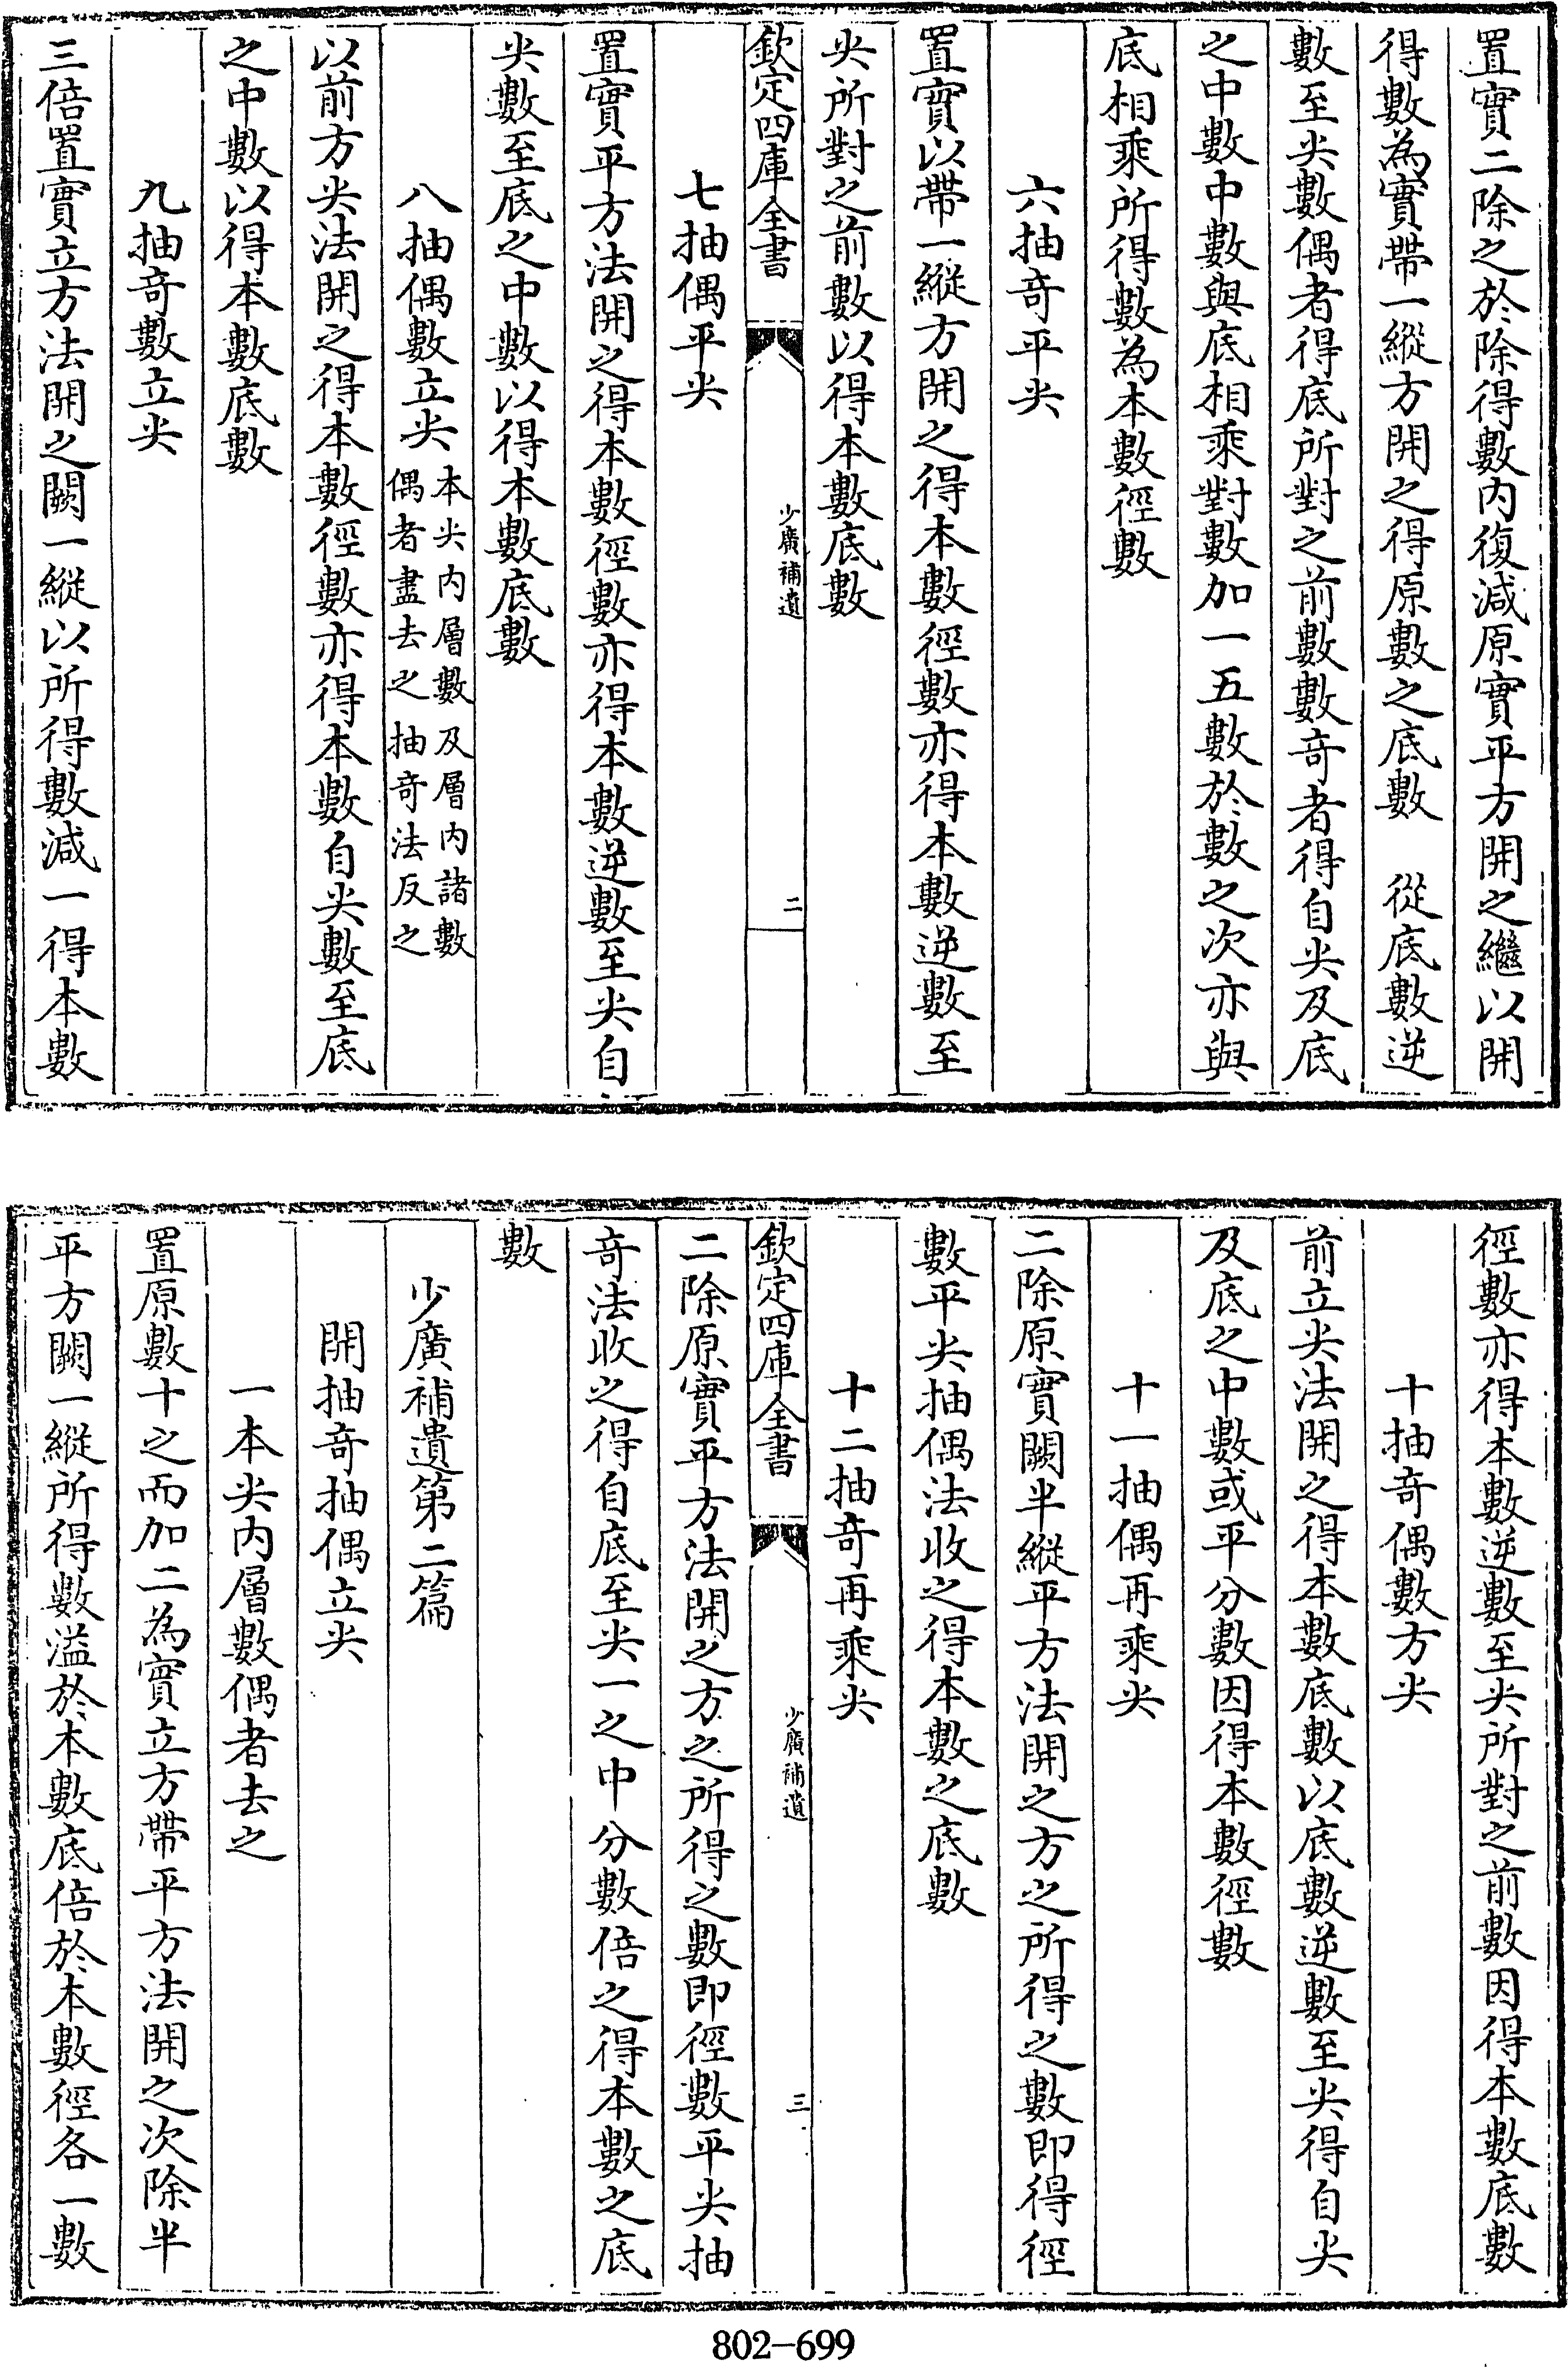 置實二除之於除得數内復減原實平方開之繼以開
得數為實帶一縱方開之得原數之底數　從底數逆
數至尖數偶者得底所對之前數數竒者得自尖及底
之中數中數與底相乘對數加一五數於數之次亦與
底相乘所得數為本數徑數
六抽竒平尖
置實以帶一縱方開之得本數徑數亦得本數逆數至
尖所對之前數以得本數底數
欽定四庫全書
少廣補遺
二
七抽偶平尖
置實平方法開之得本數徑數亦得本數逆數至尖自
尖數至底之中數以得本數底數
八抽偶數立尖
本尖内層數及層内諸數
偶者盡去之抽竒法反之
以前方尖法開之得本數徑數亦得本數自尖數至底
之中數以得本數底數
九抽竒數立尖
三倍置實立方法開之闕一縱以所得數減一得本數
徑數亦得本數逆數至尖所對之前數因得本數底數
十抽竒偶數方尖
前立尖法開之得本數底數以底數逆數至尖得自尖
及底之中數或平分數因得本數徑數
十一抽偶再乘尖
二除原實闕半縱平方法開之方之所得之數即得徑
數平尖抽偶法收之得本數之底數
十二抽竒再乘尖
欽定四庫全書
少廣補遺
三
二除原實平方法開之方之所得之數即徑數平尖抽
竒法收之得自底至尖一之中分數倍之得本數之底
數
少廣補遺第二篇
開抽竒抽偶立尖
一本尖内層數偶者去之
置原數十之而加二為實立方帶平方法開之次除半
平方闕一縱所得數溢於本數底倍於本數徑各一數
802-699